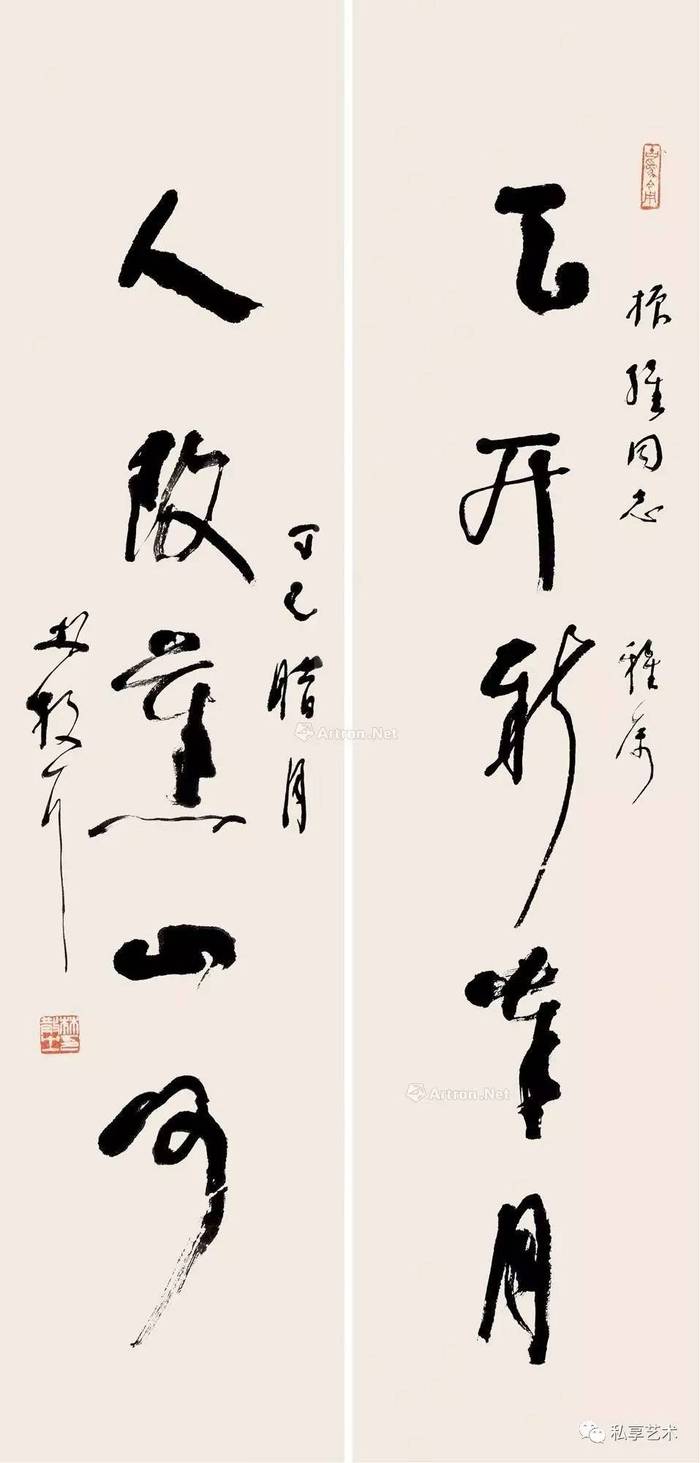 天开新歲月
振
同志
雅属
人改舊山河
丁巳腊月
林散耳
Artron.Net
Artron.Net
私享艺术